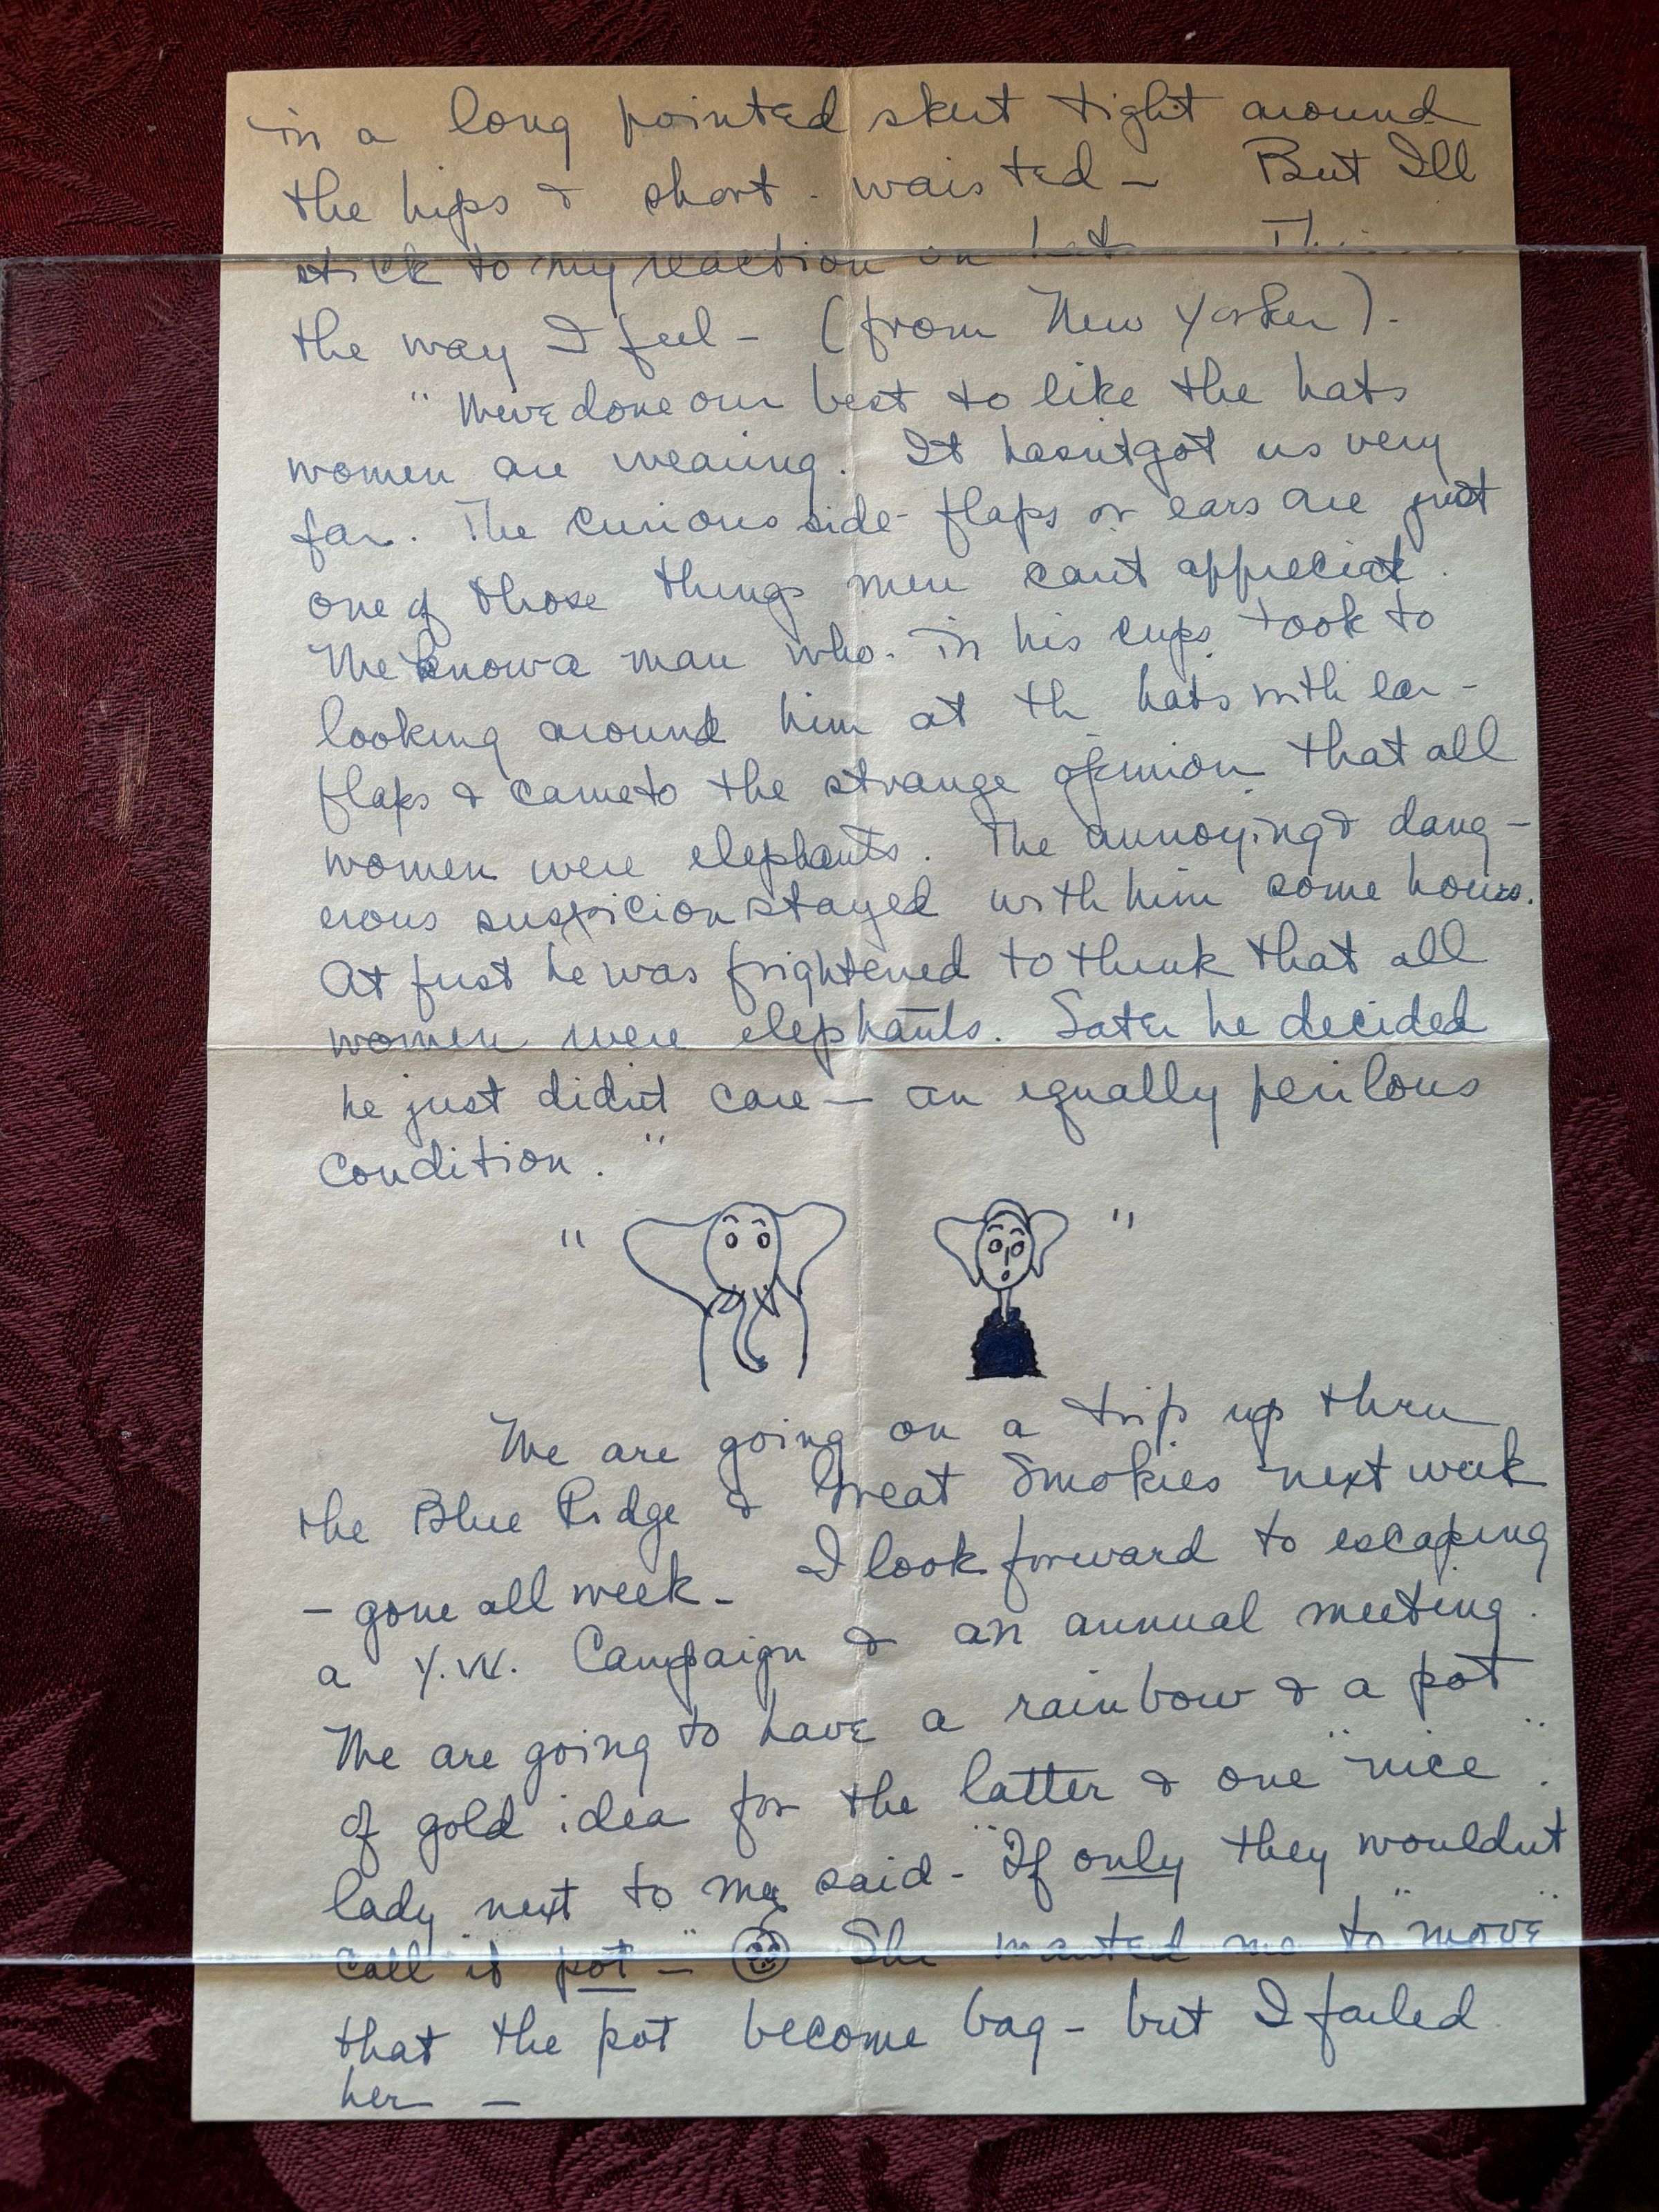 in a long pointed skirt tight around
the hips & short-waisted – But Ill
stick to my reaction on hats
the way I feel – (from New Yorker).
"Weve done our best to like the hats
women are wearing. It hasnt got us very
far. The curious side-flaps or ears are just
one of those things men can't appreciate.
We know a man who in his cups took to
looking around him at th hats with ear-
flaps & came to the strange opinion that all
women were elephants. The annoying & dang-
erous suspicion stayed with him some hours.
At first he was frightened to think that all
women were elephants. Later he decided
he just didn't care – an equally perilous
condition."
" "
We are going on a trip up thru
the Blue Ridge & Great Smokies next week
– gone all week – I look forward to escaping
a Y.W. Campaign & an annual meeting.
We are going to have a rainbow & a pot
of gold idea for the latter & one "nice"
lady next to me said – "If only they wouldn't
call it pot –" She wanted me to "move"
that the pot become bag – but I failed
her –